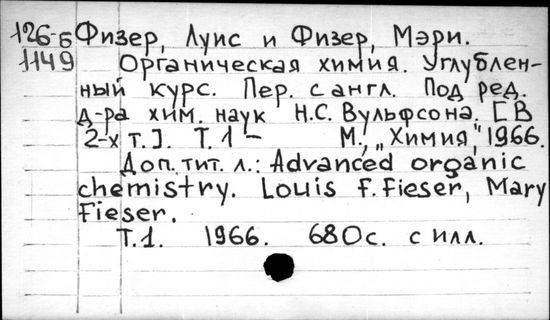 126-5 Физер, Луис и Физер, Мэри.
1149 Органическая химия. Углублен-
ный курс. Пер. с англ. Под ред.
д-ра хим. наук Н.С. Вульфсона. [В
2-х т.]. Т.1 – М., „Химия", 1966.
Доп. тит. л.: Advanced organic
chemistry. Louis F. Fieser, Mary
Fieser.
Т.1. 1966. 680с. с илл.